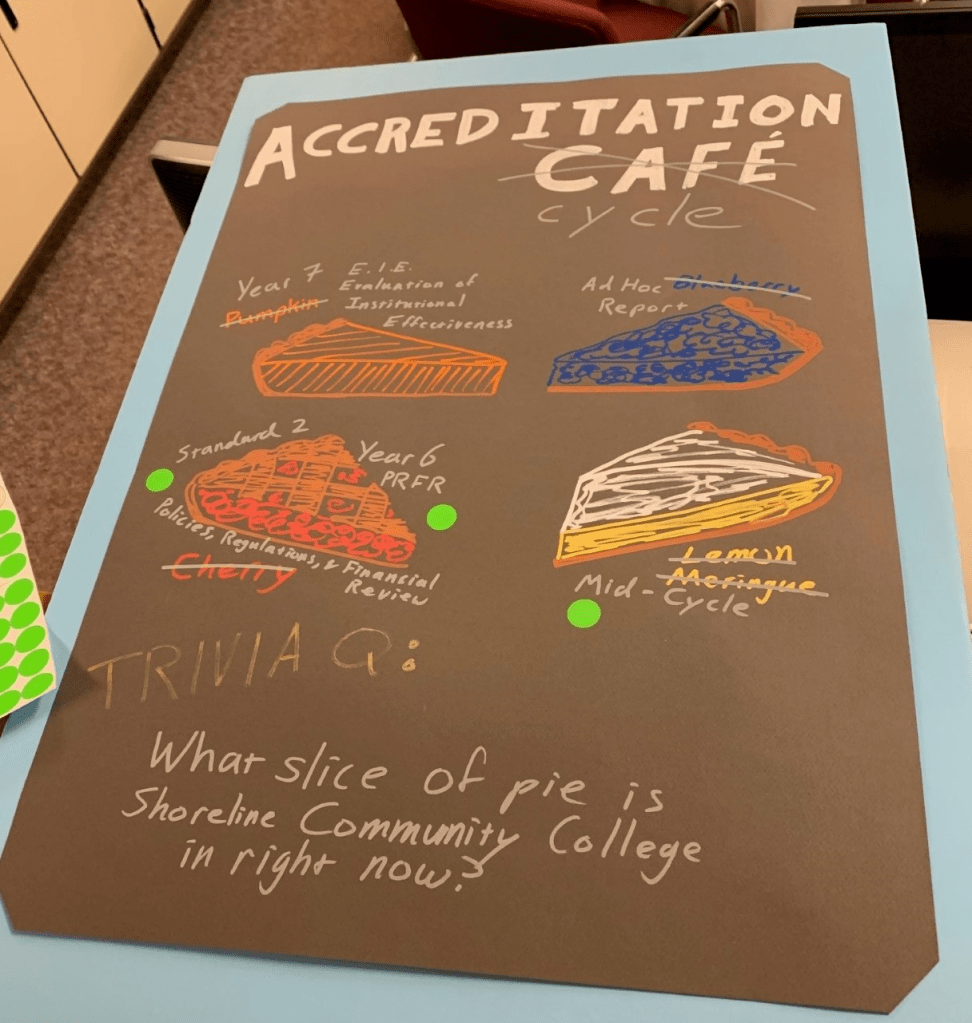 ACCREDITATION
CAFÉ
cycle
Year 7 E.I.E.
Pumpkin Evaluation of
Institutional
Effectiveness
Ad Hoc Blueberry
Report
Standard 2
Year 6
PRFR
Policies, Regulations, & Financial
Review
Cherry
Lemon
Meringue
Mid-Cycle
TRIVIA Q:
What slice of pie is
Shoreline Community College
in right now?